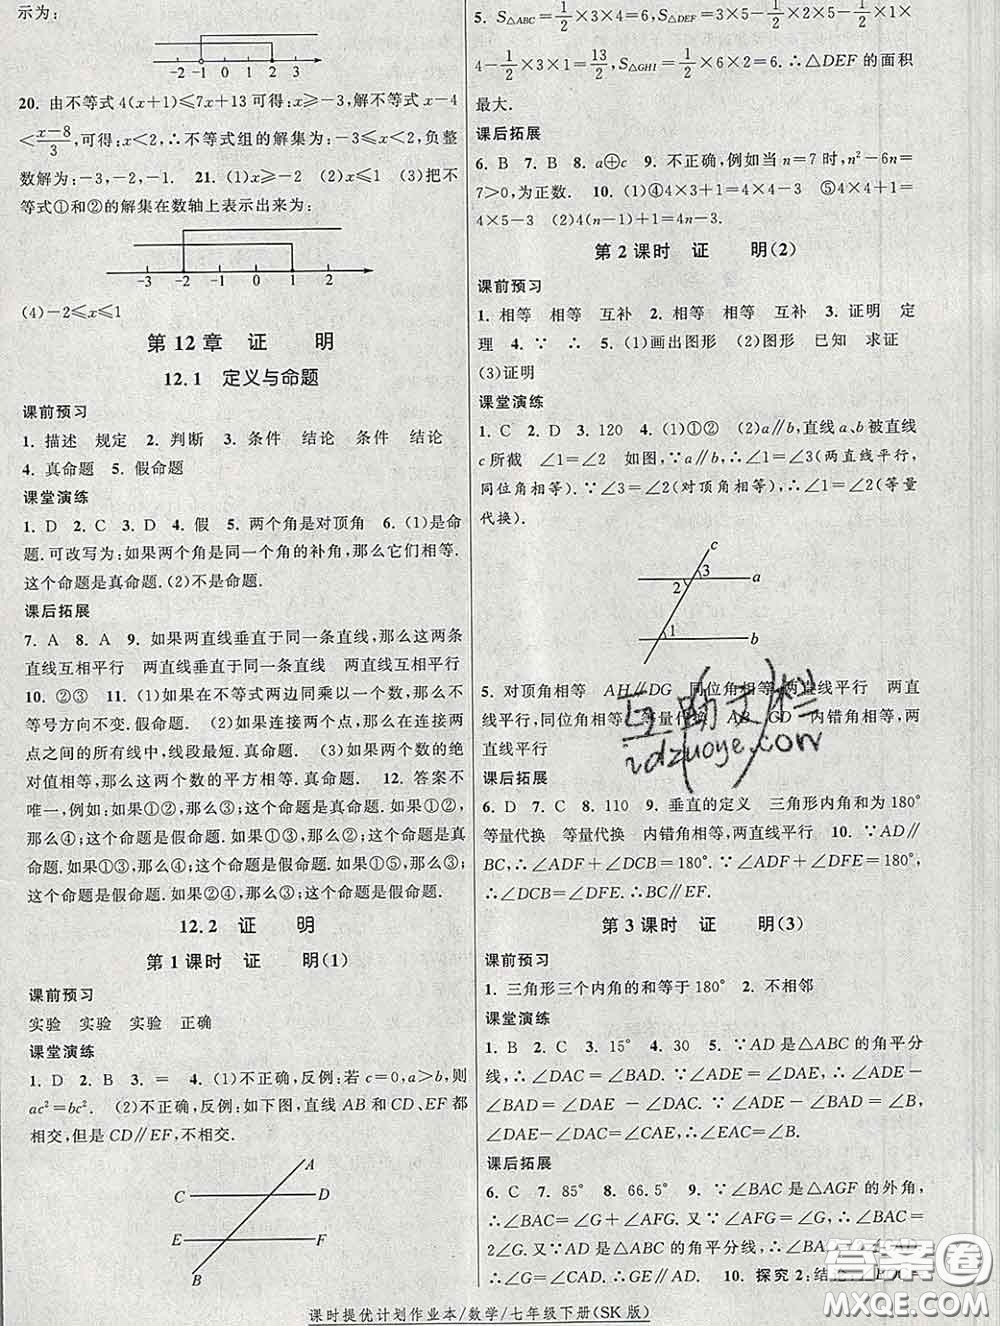 示为:
-2 -1 0 1 2 3
20. 由不等式4(x+1)≤7x+13可得:x≥-3,解不等式x-4
<(x-8)/3,可得:x<2,∴不等式组的解集为:-3≤x<2,负整
数解为:-3,-2,-1. 21. (1)x≥-2 (2)x≤1 (3)把不
等式①和②的解集在数轴上表示出来为:
-3 -2 -1 0 1 2
(4)-2≤x≤1
第12章 证 明
12.1 定义与命题
课前预习
1. 描述 规定 2. 判断 3. 条件 结论 条件 结论
4. 真命题 5. 假命题
课堂演练
1. D 2. C 3. D 4. 假 5. 两个角是对顶角 6. (1)是命
题.可改写为:如果两个角是同一个角的补角,那么它们相等.
这个命题是真命题.(2)不是命题.
课后拓展
7. A 8. A 9. 如果两直线垂直于同一条直线,那么这两条
直线互相平行 两直线垂直于同一条直线 两直线互相平行
10. ②③ 11. (1)如果在不等式两边同乘以一个数,那么不
等号方向不变.假命题. (2)如果连接两个点,那么连接这两
点之间的所有线中,线段最短.真命题. (3)如果两个数的绝
对值相等,那么这两个数的平方相等.真命题. 12. 答案不
唯一,例如:如果①②,那么③;这个命题是真命题.如果①②,
那么④;这个命题是假命题.如果①③,那么②;这个命题是真
命题.如果①③,那么④;这个命题是假命题.如果①⑤,那么③;
这个命题是假命题.如果②④,那么③;这个命题是假命题.
12.2 证 明
第1课时 证 明(1)
课前预习
实验 实验 实验 正确
课堂演练
1. D 2. B 3. = 4. (1)不正确,反例:若c=0,a>b,则
ac²=bc². (2)不正确,反例:如下图,直线AB和CD、EF都
相交,但是CD∥EF,不相交.
A
C D
E F
B
5. S△ABC=1/2×3×4=6,S△DEF=3×5-1/2×5×1-1/2×2×
4-1/2×3×1=13/2,S△GHI=1/2×6×2=6.∴△DEF的面积
最大.
课后拓展
6. B 7. B 8. a⊕c 9. 不正确,例如当n=7时,n²-6n=
7>0,为正数. 10. (1)④4×3+1=4×4-3 ⑤4×4+1=
4×5-3 (2)4(n-1)+1=4n-3.
第2课时 证 明(2)
课前预习
1. 相等 相等 互补 2. 相等 相等 互补 3. 证明 定
理 4. ∵ ∴ 5. (1)画出图形 (2)图形 已知 求证
(3)证明
课堂演练
1. C 2. D 3. 120 4. (1)①② (2)a∥b,直线a、b被直线
c所截 ∠1=∠2 如图,∵a∥b,∴∠1=∠3(两直线平行,
同位角相等).∵∠3=∠2(对顶角相等),∴∠1=∠2(等量
代换).
c
3
a
2
1
b
5. 对顶角相等 AH∥DG 同位角相等,两直线平行 两直
线平行,同位角相等 等量代换 AB GD 内错角相等,两
直线平行
互助文档
idzuoye.com
课后拓展
6. D 7. C 8. 110 9. 垂直的定义 三角形内角和为180°
等量代换 等量代换 内错角相等,两直线平行 10. ∵AD∥
BC,∴∠ADF+∠DCB=180°.∵∠ADF+∠DFE=180°,
∴∠DCB=∠DFE.∴BC∥EF.
第3课时 证 明(3)
课前预习
1. 三角形三个内角的和等于180° 2. 不相邻
课堂演练
1. B 2. C 3. 15° 4. 30 5. ∵AD是△ABC的角平分
线,∴∠DAC=∠BAD.∵∠EAC=∠B,∴∠DAC+∠EAC
=∠BAD+∠B.∵∠DAE-∠BAD=∠B,
∠DAE-∠DAC=∠CAE,∴∠EAC=∠B.
课后拓展
6. C 7. 85° 8. 66.5° 9. ∵∠BAC是△AGF的外角,
∴∠BAC=∠G+∠AFG.又∵∠AFG=∠G,∴∠BAC=
2∠G.又∵AD是△ABC的角平分线,∴∠BAC=
10. 探究2:结论
课时提优计划作业本/数学/七年级下册(SK版)
答案圈
MXQE.COM